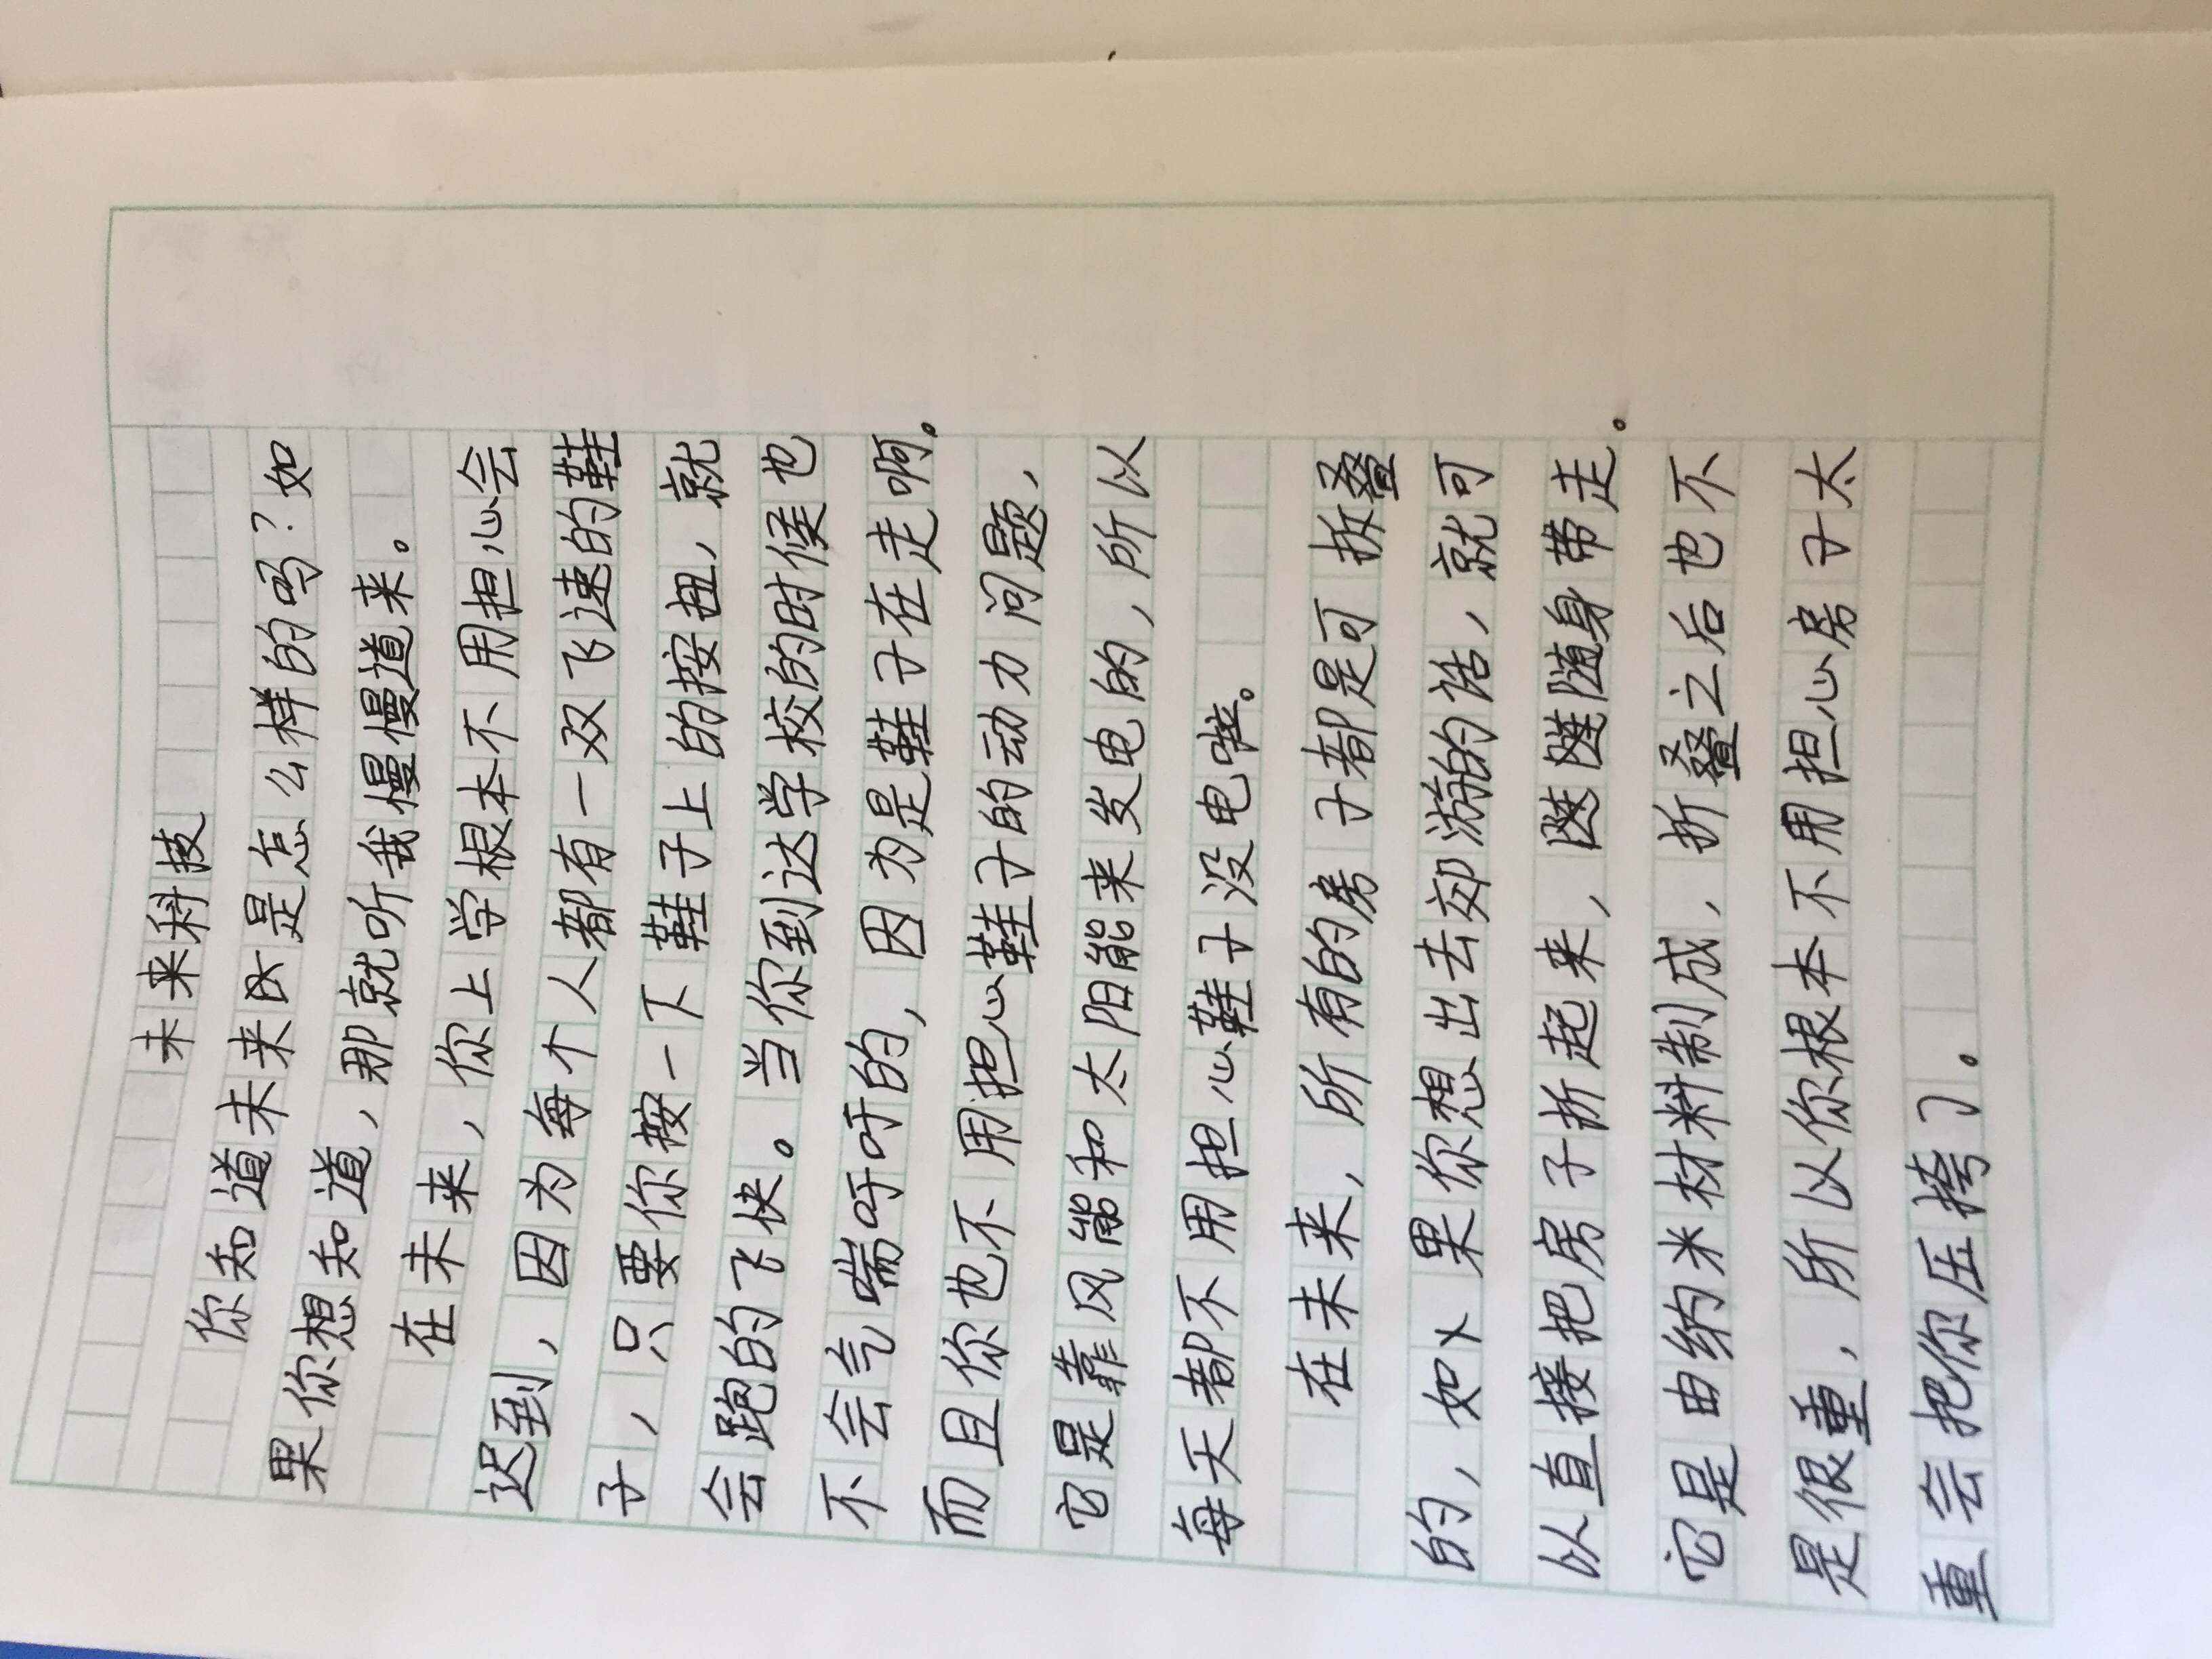 未来科技
你知道未来是怎么样的吗？如
果你想知道，那就听我慢慢道来。
在未来，你上学根本不用担心会
迟到，因为每个人都有一双飞速的鞋
子，只要你按一下鞋子上的按扭，就
会跑的飞快。当你到达学校的时候也
不会气喘吁吁的，因为是鞋子在走啊。
而且你也不用担心鞋子的动力问题，
它是靠风能和太阳能来发电的，所以
每天都不用担心鞋子没电啦。
在未来，所有的房子都是可拆叠
的，如果你想出去郊游的话，就可
以直接把房子折起来，随身带走。
它是由纳米材料制成，折叠之后也不
是很重，所以你根本不用担心房子太
重会把你压挎了。